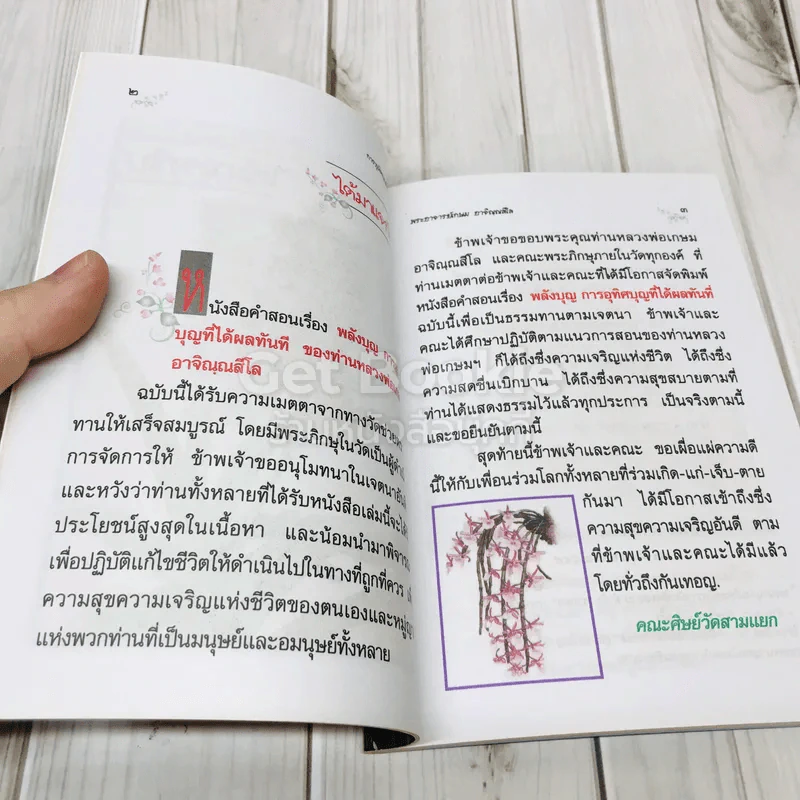 ๒
ได้มาแจก
หนังสือคำสอนเรื่อง พลังบุญ
บุญที่ได้ผลทันที ของท่านหลวงพ่อ
อาจิณฺณสีโล
ฉบับนี้ได้รับความเมตตาจากทางวัดช่วย
ทานให้เสร็จสมบูรณ์ โดยมีพระภิกษุในวัดเป็นผู้
การจัดการให้ ข้าพเจ้าขออนุโมทนาในเจตนา
และหวังว่าท่านทั้งหลายที่ได้รับหนังสือเล่มนี้จะ
ประโยชน์สูงสุดในเนื้อหา และน้อมนำมาพิจาร
เพื่อปฏิบัติแก้ไขชีวิตให้ดำเนินไปในทางที่ถูกที่ควร
ความสุขความเจริญแห่งชีวิตของตนเองและหมู่
แห่งพวกท่านที่เป็นมนุษย์และอมนุษย์ทั้งหลาย
พระอาจารย์เกษม อาจิณฺณสีโล
๓
ข้าพเจ้าขอขอบพระคุณท่านหลวงพ่อเกษม
อาจิณฺณสีโล และคณะพระภิกษุภายในวัดทุกองค์ ที่
ท่านเมตตาต่อข้าพเจ้าและคณะที่ได้มีโอกาสจัดพิมพ์
หนังสือคำสอนเรื่อง พลังบุญ การอุทิศบุญที่ได้ผลทันที
ฉบับนี้เพื่อเป็นธรรมทานตามเจตนา ข้าพเจ้าและ
คณะได้ศึกษาปฏิบัติตามแนวการสอนของท่านหลวง
พ่อเกษมฯ ก็ได้ถึงซึ่งความเจริญแห่งชีวิต ได้ถึงซึ่ง
ความสดชื่นเบิกบาน ได้ถึงซึ่งความสุขสบายตามที่
ท่านได้แสดงธรรมไว้แล้วทุกประการ เป็นจริงตามนี้
และขอยืนยันตามนี้
สุดท้ายนี้ข้าพเจ้าและคณะ ขอเผื่อแผ่ความดี
นี้ให้กับเพื่อนร่วมโลกทั้งหลายที่ร่วมเกิด-แก่-เจ็บ-ตาย
กันมา ได้มีโอกาสเข้าถึงซึ่ง
ความสุขความเจริญอันดี ตาม
ที่ข้าพเจ้าและคณะได้มีแล้ว
โดยทั่วถึงกันเทอญ.
คณะศิษย์วัดสามแยก
Get Bookie